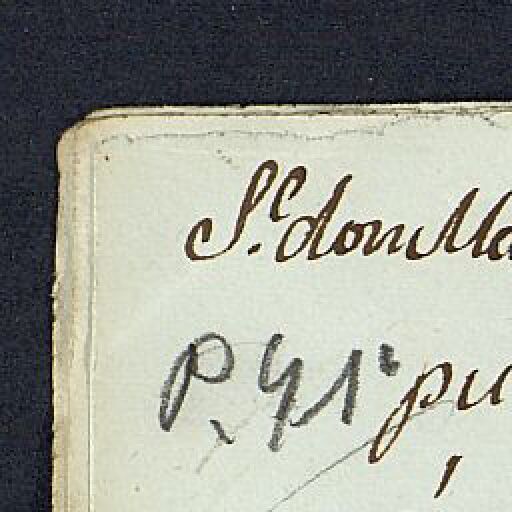 S.r dom Ma
P. 41 pu